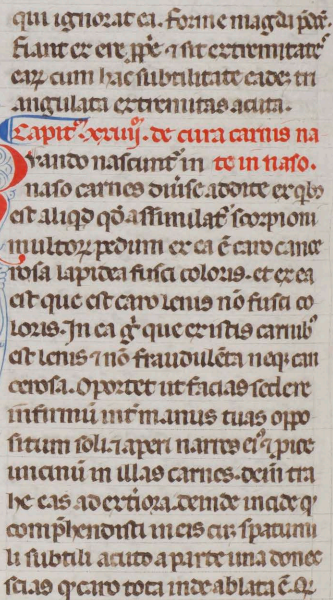 qui ignorat ea. Forme magdaꝝ
Fiant ex ere ꝓpe ⁊ sit extremitateˢ
earꝝ cum hac subtilitate eadeꝫ tri
angulata extremitas acuta.
Capitᵐ .xxiiijᵐ. de cura carnis na
Quando nascunt᷑ in te in naso.
naso carnes diuīse addite ex qͥbꝰ
est aliqͩ qd̄ assimilat᷑ scorpioni
multoꝝ pedum ex ea ē caro cance
rosa lapidea fusci coloris. et ex ea
est que est caro lenis nō fusci co
loris. In ea gͦ que ex istis carnibꝰ
est lenis ⁊ nō fraudulēta neqꝫ can
cerosa. Oportet ut facias sedere
infirmū int᷑ manus tuas oppo
situm soli. ⁊ aperi narres eiꝰ ⁊ ꝓice
uncinū in illas carnes. dein̄ tra
he eas ad exteriora. deinde incide qͩ
comp̄hendisti in eis cū spatumi
li subtili acuto a parte una donec
scias ꝙ caro tota inde ablata ē.